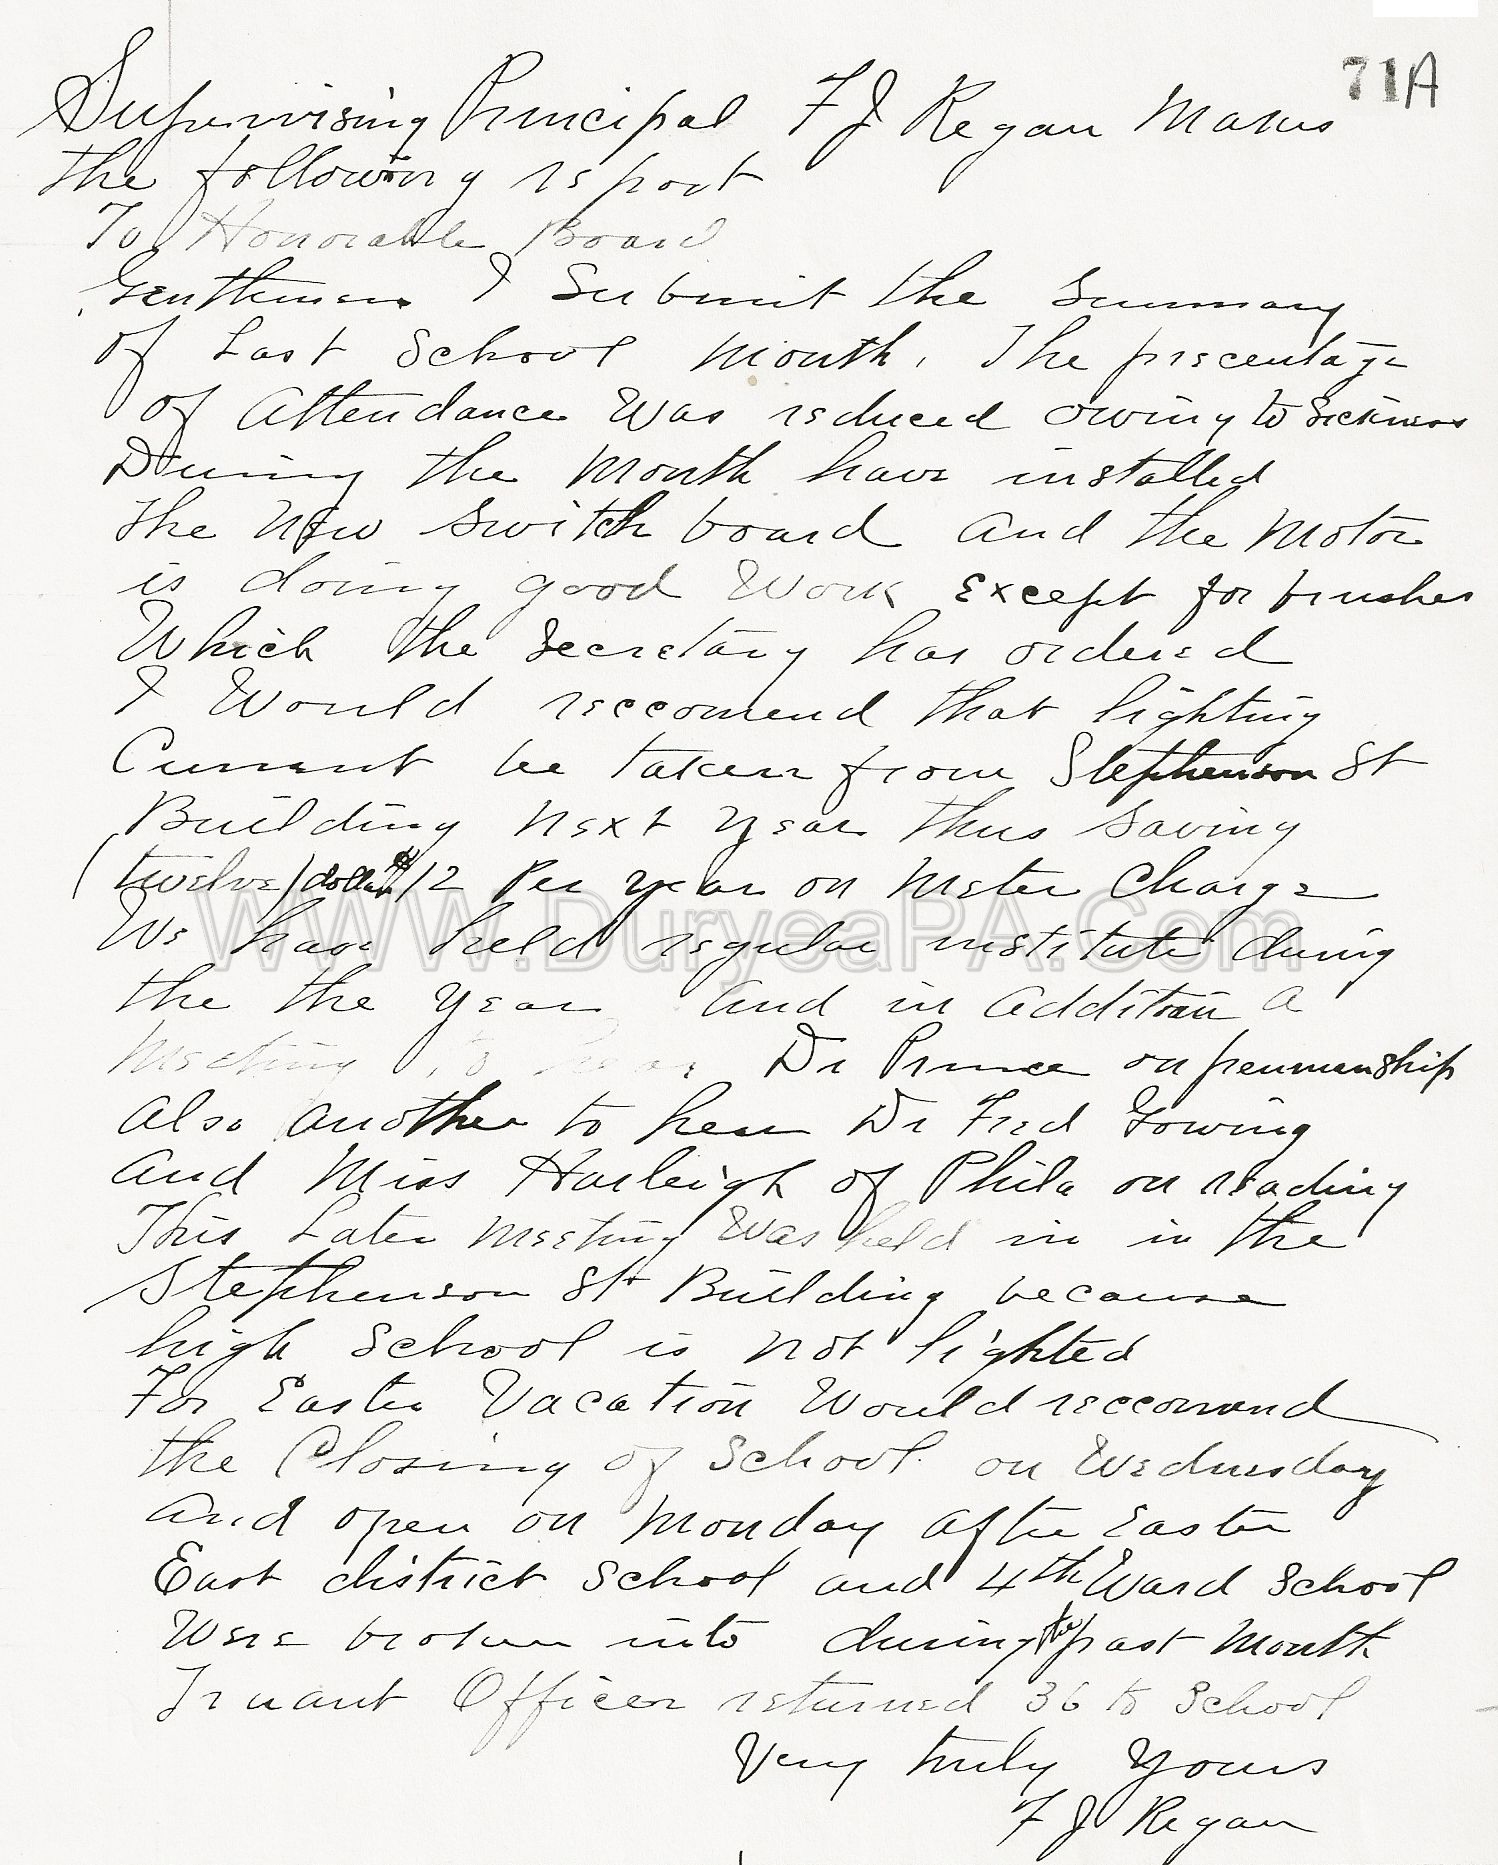 71A
Supervising Principal F J Regan Makes
the following report
To Honorable Board
Gentlemen I Submit the Summary
of Last School Month. The precentage
of Attendance Was reduced owing to Sickness
During the Month have installed
the New Switch board and the Motor
is doing good Work except for brushes
Which the Secretary has ordered
I Would reccomend that lighting
Current be taken from Stephenson St
Building next year thus Saving
(twelve) dollars $12 Per year on Meter Charge
We have held regular institute during
the the year and in addition a
Meeting to hear Dr Prince on penmanship
also another to hear Dr Fred Gowing
and Miss Harleigh of Phila on reading
This Later Meeting Was held in in the
Stephenson St Building because
high School is not lighted
For Easter Vacation Would reccomend
the Closing of School on Wednesday
and open on Monday after Easter
East district School and 4th Ward School
Were broken into during the past Month
Truant Officer returned 36 to School
Very truly Yours
F J Regan
WWW.DuryeaPA.Com